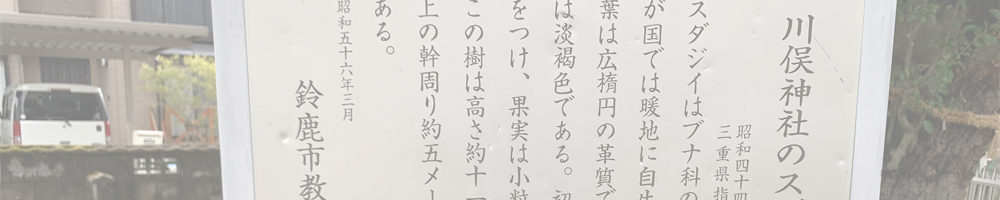 川俣神社のス
昭和四十四
三重県指
スダジイはブナ科の
が国では暖地に自生
葉は広楕円の革質で
は淡褐色である。初
をつけ、果実は小粒
この樹は高さ約十一
上の幹周り約五メー
ある。
昭和五十六年三月
鈴鹿市教